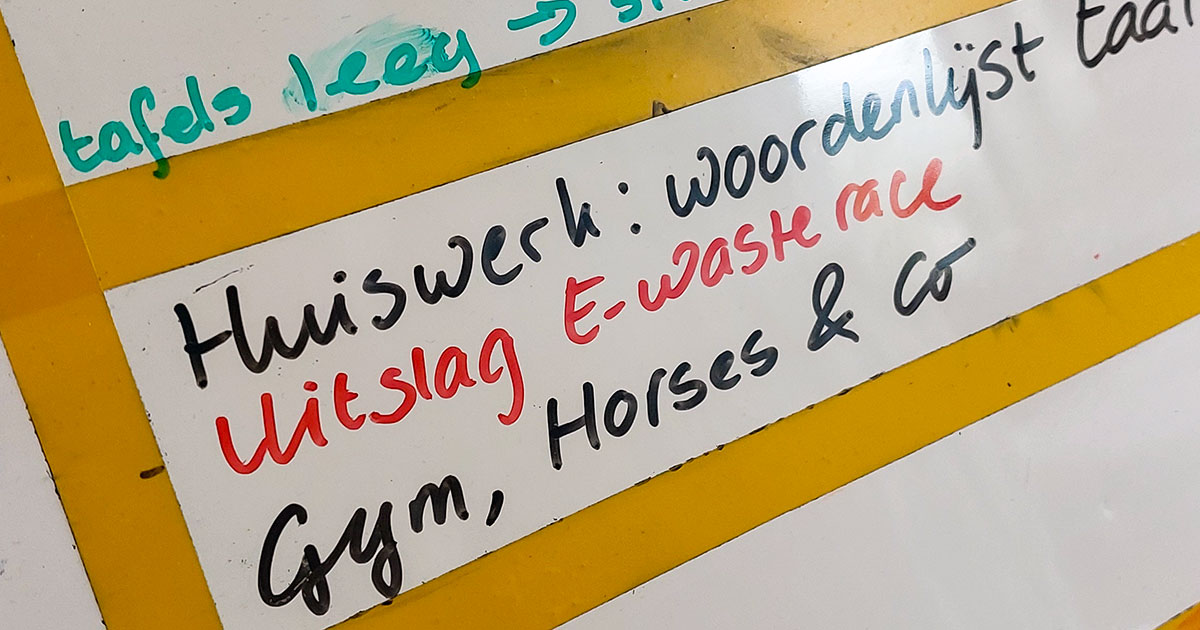 tafels leeg →
Huiswerk: woordenlijst taal
Uitslag E-waste race
Gym, Horses & co